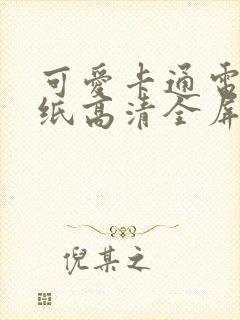 可爱卡通雷
纸高清全屏
倪某之